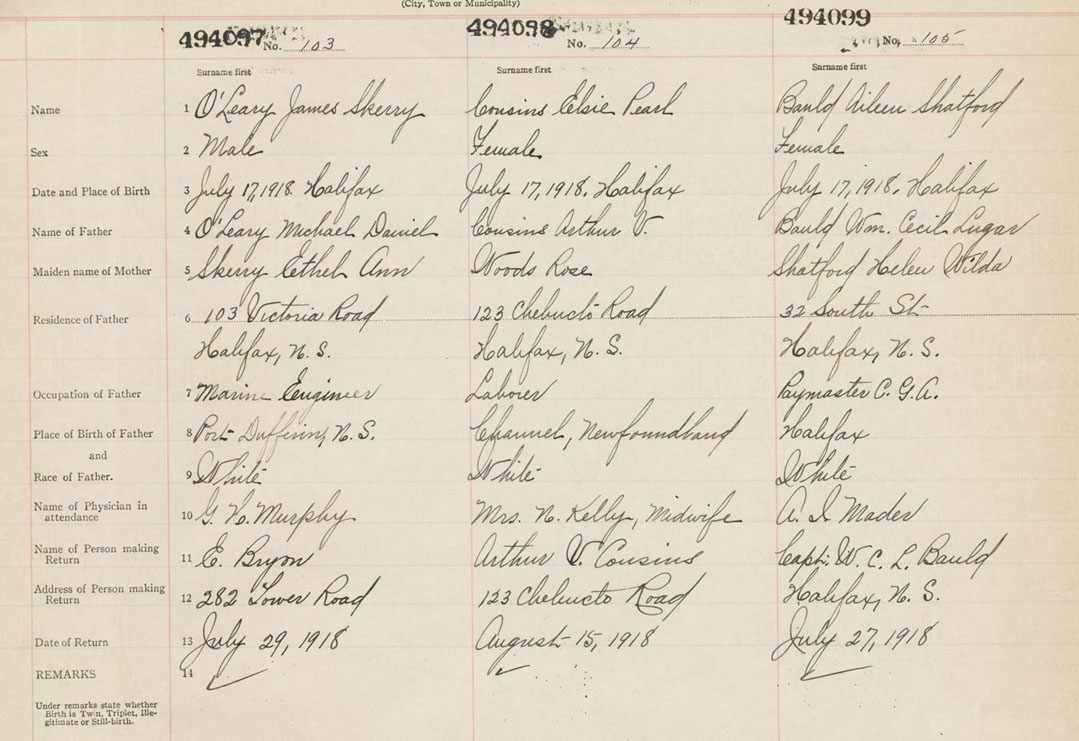 (City, Town or Municipality)
494097 No. 103 494098 No. 104 494099 No. 105
Surname first Surname first Surname first
Name 1 O'Leary James Skerry Cousins Elsie Pearl Bauld Aileen Shatford
Sex 2 Male Female Female
Date and Place of Birth 3 July 17, 1918 Halifax July 17, 1918. Halifax July 17, 1918. Halifax
Name of Father 4 O'Leary Michael Daniel Cousins Arthur V. Bauld Wm. Cecil Lugar
Maiden name of Mother 5 Skerry Ethel Ann Woods Rose Shatford Helen Wilda
Residence of Father 6 103 Victoria Road 123 Chebucto Road 32 South St
Halifax, N. S. Halifax, N. S. Halifax, N. S.
Occupation of Father 7 Marine Engineer Laborer Paymaster C. G. A.
Place of Birth of Father 8 Port Dufferin, N. S. Channel, Newfoundland Halifax
and
Race of Father. 9 White White White
Name of Physician in
attendance 10 G. H. Murphy Mrs. N. Kelly, Midwife A. I. Mader
Name of Person making
Return 11 E. Bryon Arthur V. Cousins Capt. W. C. L. Bauld
Address of Person making
Return 12 282 Tower Road 123 Chebucto Road Halifax, N. S.
Date of Return 13 July 29, 1918 August 15, 1918 July 27, 1918
REMARKS 14
Under remarks state whether
Birth is Twin, Triplet, Ille-
gitimate or Still-birth.